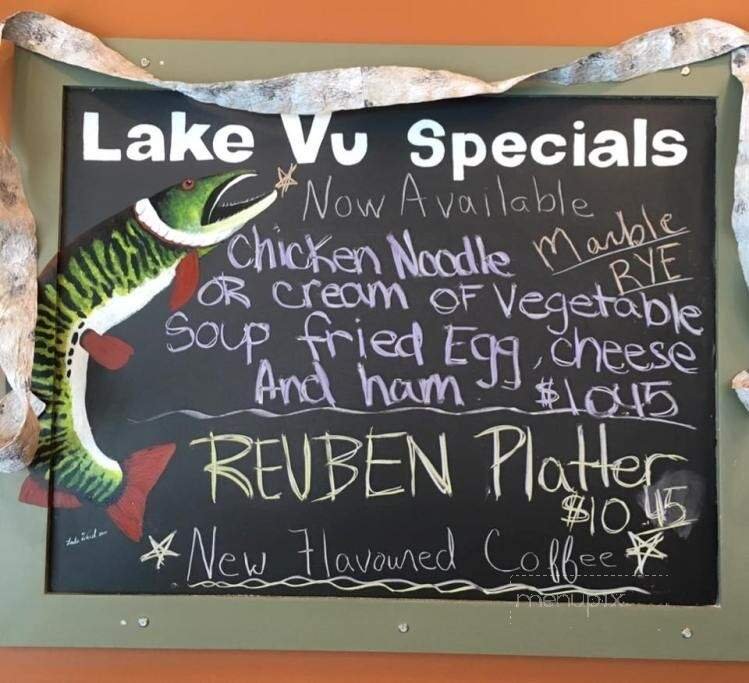 Lake Vu Specials
Now Available
Marble
RYE
Chicken Noodle
OR cream of Vegetable
Soup fried Egg, cheese
And ham $10.45
REUBEN Platter
$10.45
New Flavoured Coffee
menupix